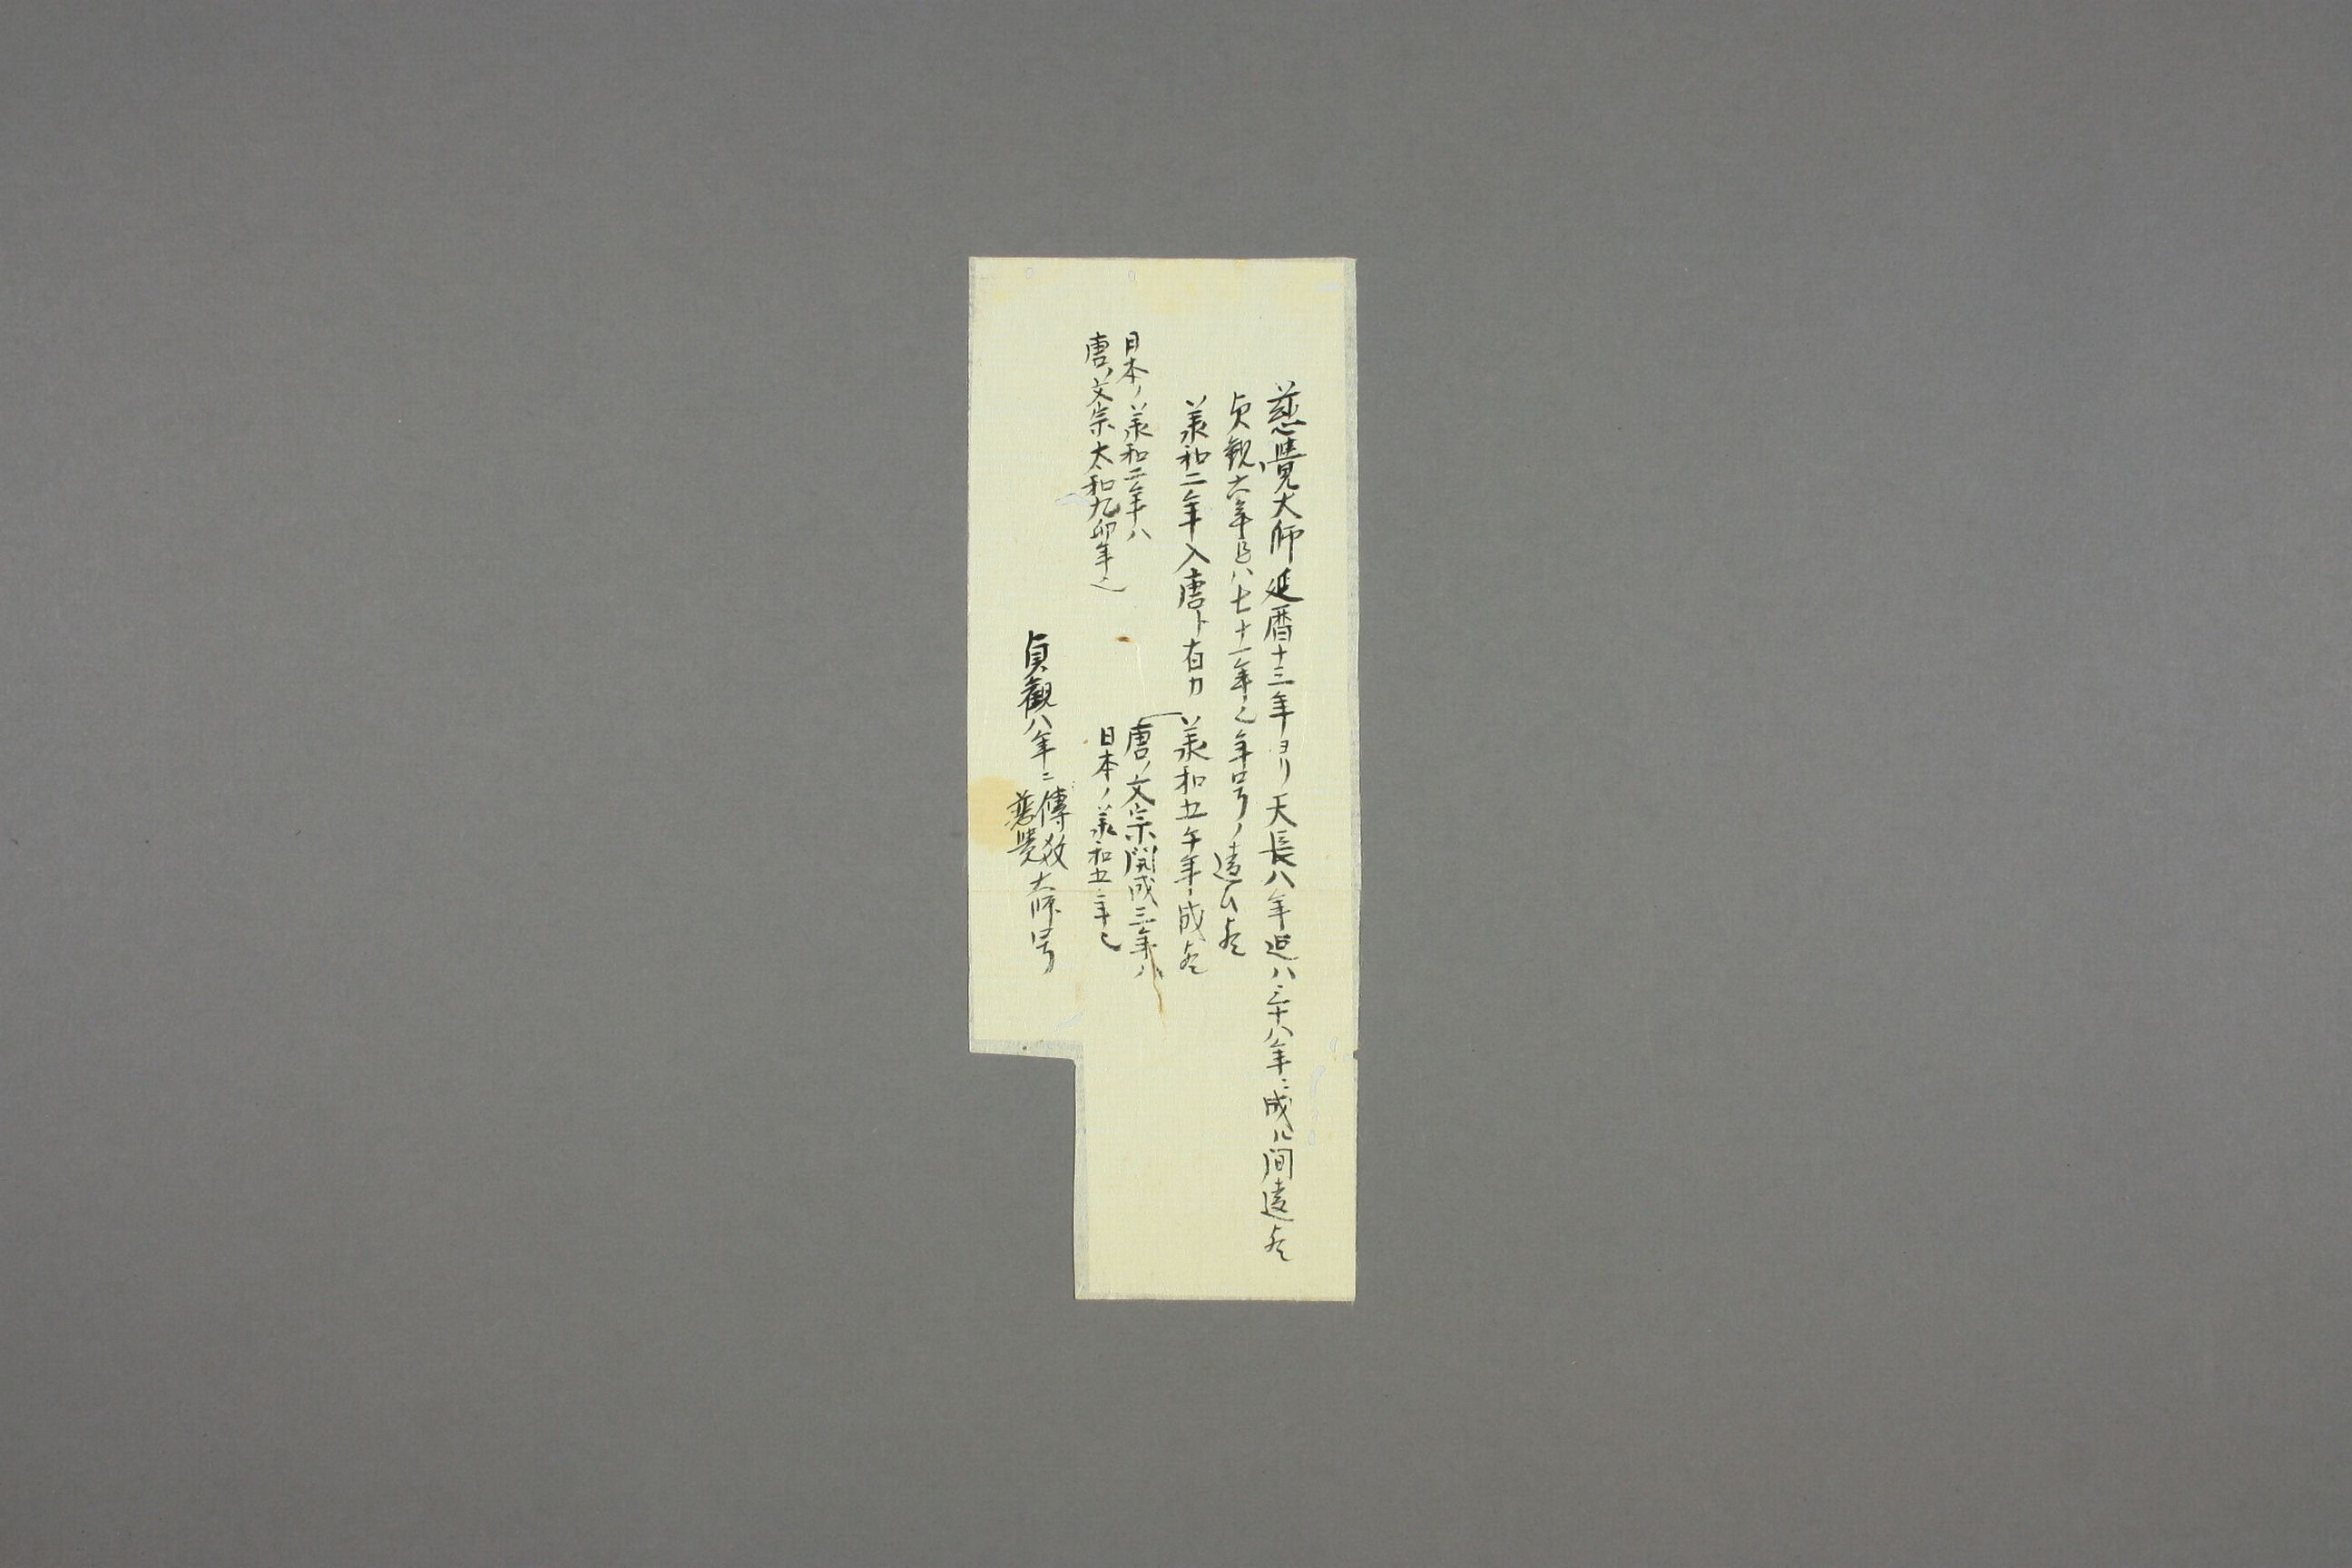 慈覺大師延暦十三年ヨリ天長八年迠ハ三十八年ニ成ル間違歟
貞観六年迠ハ七十一年也年号ノ違ひ歟
美和二年入唐ト有カ
美和五午年成歟
唐ノ文宗開成三年ハ
日本ノ美和五年也
日本ノ美和二年ハ
唐ノ文宗太和九卯年也
貞観八年ニ傳教
慈覺大師号